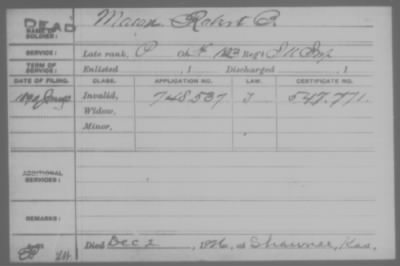 DEAD
NAME OF SOLDIER: Mason Robert B.
SERVICE: Late rank, Co. 123 Reg't Inf
TERM OF SERVICE: Enlisted , 1 Discharged , 1
DATE OF FILING. CLASS. APPLICATION NO. LAW. CERTIFICATE NO.
Invalid, 748.537 J 547.771.
Widow,
Minor,
ADDITIONAL SERVICES:
REMARKS:
Died Dec 2, 1926, at Shawnee, Kas.